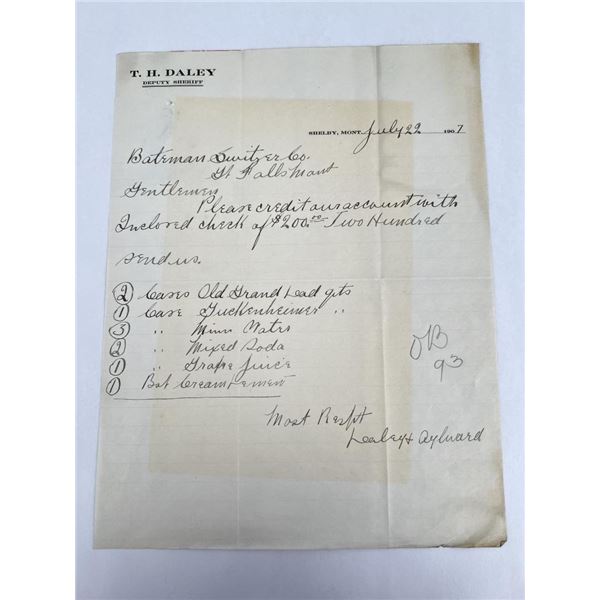 T. H. DALEY
DEPUTY SHERIFF
SHELBY, MONT. July 22 1907
Bateman Switzer Co.
Gt Falls Mont
Gentlemen
Please credit our account with
Inclosed check of $200.00 Two Hundred
send us.
2 Cases Old Grand Dad qts
1 Case Guckenheimer "
3 " Minn
2 " Mixed Soda
1 " Grape Juice
1 Bot Cream
Most Respt
Daley & Aylward
OB
93